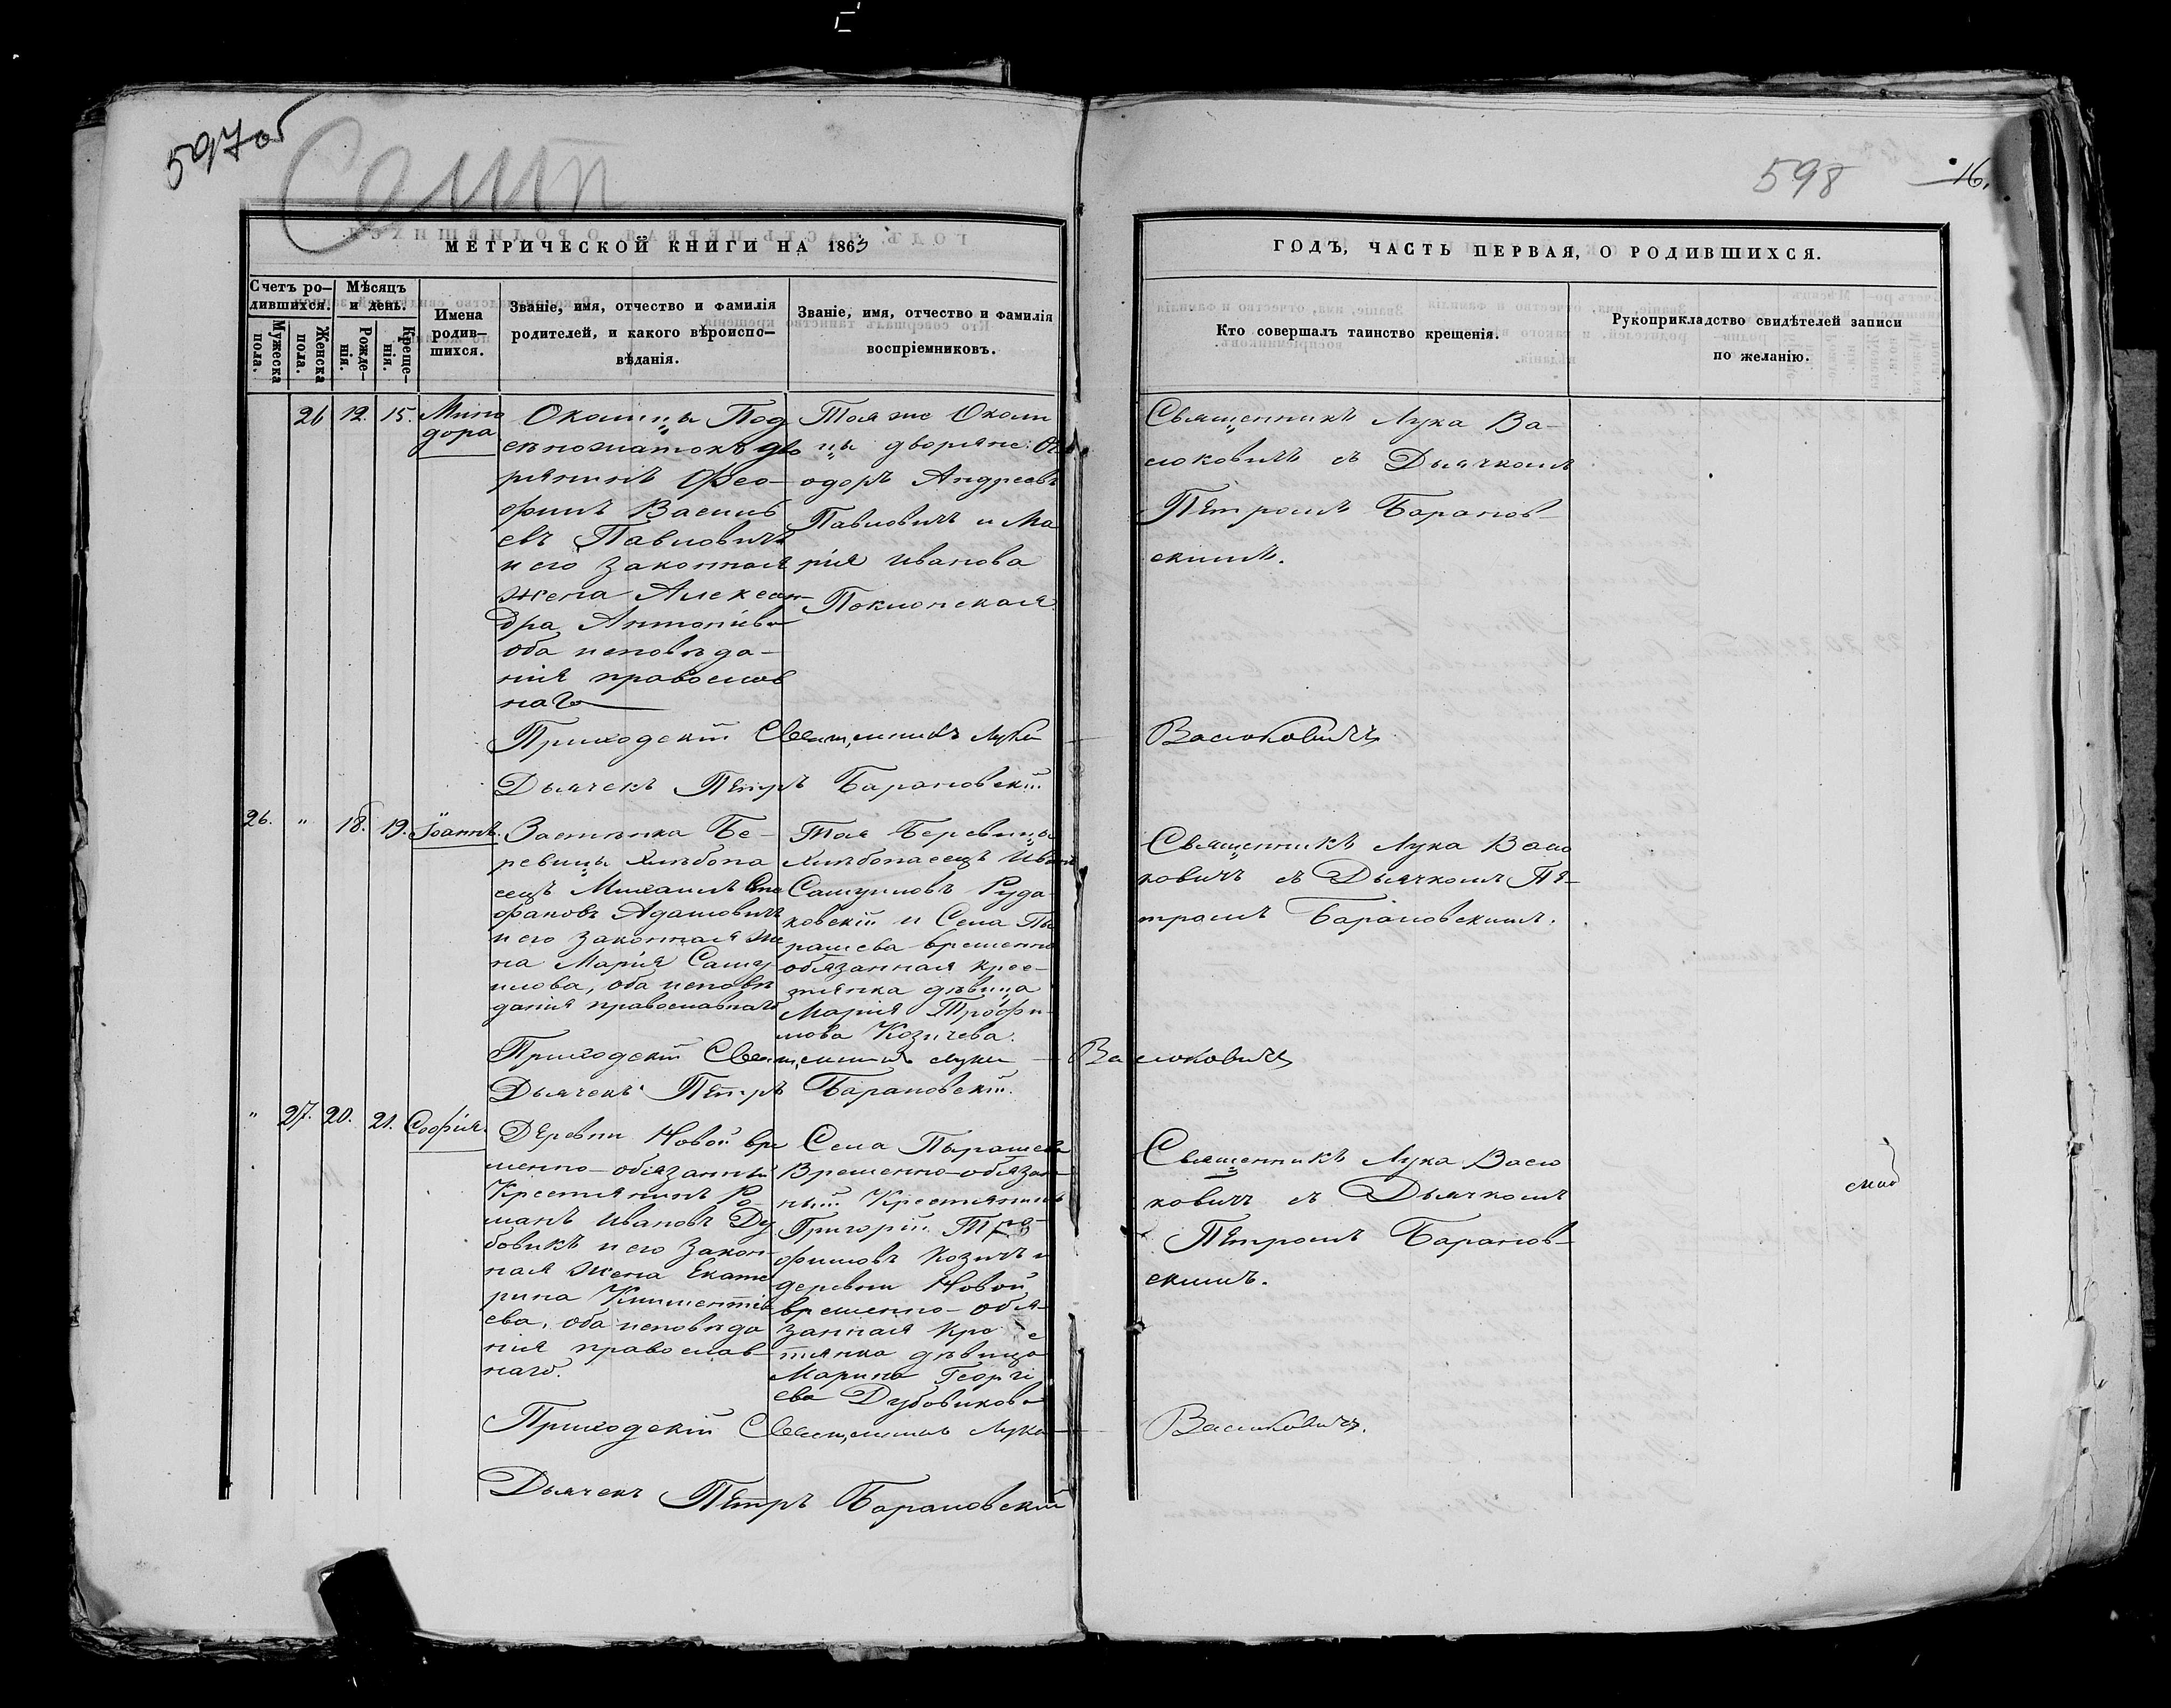 597об
Сент
598
16.
МЕТРИЧЕСКОЙ КНИГИ НА 1863
ГОДЪ, ЧАСТЬ ПЕРВАЯ, О РОДИВШИХСЯ.
Счетъ ро-
дившихся.
Мужеска
пола.
Женска
пола.
Мѣсяцъ
и день.
Рожде-
нія.
Креще-
нія.
Имена
родив-
шихся.
Званіе, имя, отчество и фамилія
родителей, и какого вѣроиспо-
вѣданія.
Званіе, имя, отчество и фамилія
воспріемниковъ.
Кто совершалъ таинство крещенія.
Рукоприкладство свидѣтелей записи
по желанію.
26 12. 15. Мино
дора
Околицы Под
сѣножатокъ дво
рянинъ Ѳео-
филъ Василь
евъ Павловичъ
и его законная
жена Алексан-
дра Антоніева
оба исповѣда-
нія православ
наго
Тоя же Околи
цы дворяне: Ѳе
одоръ Андреевъ
Павловичъ и Ма
рія Иванова
Поклонская
Священникъ Лука Ва-
сюковичъ съ Дьячкомъ
Петромъ Баранов-
скимъ.
Приходскій Священникъ Лука Васюковичъ
Дьячекъ Петръ Барановскій.
26. " 18. 19. Іоаннъ.
Застѣнка Бе-
ревицы хлѣбопа
сецъ Михаилъ Сте
фановъ Адамовичъ
и его законная же
на Марія Саму-
илова, оба исповѣ
данія православнаго
Тоя Беревицы
хлѣбопасецъ Иванъ
Самуиловъ Руда
ковскій и Села Пы
рашева временно
обязанная крес-
тянка дѣвица
Марія Трофи-
мова Козичева.
Священникъ Лука Васю
ковичъ съ Дьячкомъ Пе-
тромъ Барановскимъ.
Приходскій Священникъ Лука Васюковичъ
Дьячекъ Петръ Барановскій.
" 27. 20. 21. Софія.
Деревни Новой вре
менно-обязанный
Крестянинъ Ро
манъ Ивановъ Ду
бовикъ и его закон-
ная жена Екате
рина Климентіе
ева, оба исповѣда
нія православ-
наго.
Села Пырашева
Временно-обязан-
ный Крестянинъ
Григорій Тро
фимовъ Козичъ и
деревни Новой
временно-обя-
занная крес
тянка дѣвица
Марина Георгі
ева Дубовикова
Священникъ Лука Васю
ковичъ съ Дьячкомъ
Петромъ Баранов-
скимъ.
Приходскій Священникъ Лука Васюковичъ.
Дьячекъ Петръ Барановскій